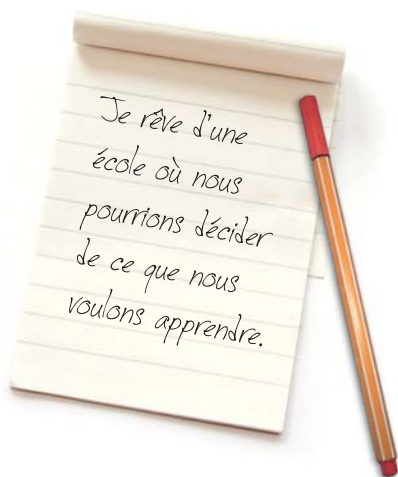 Je rêve d'une
école où nous
pourrions décider
de ce que nous
voulons apprendre.